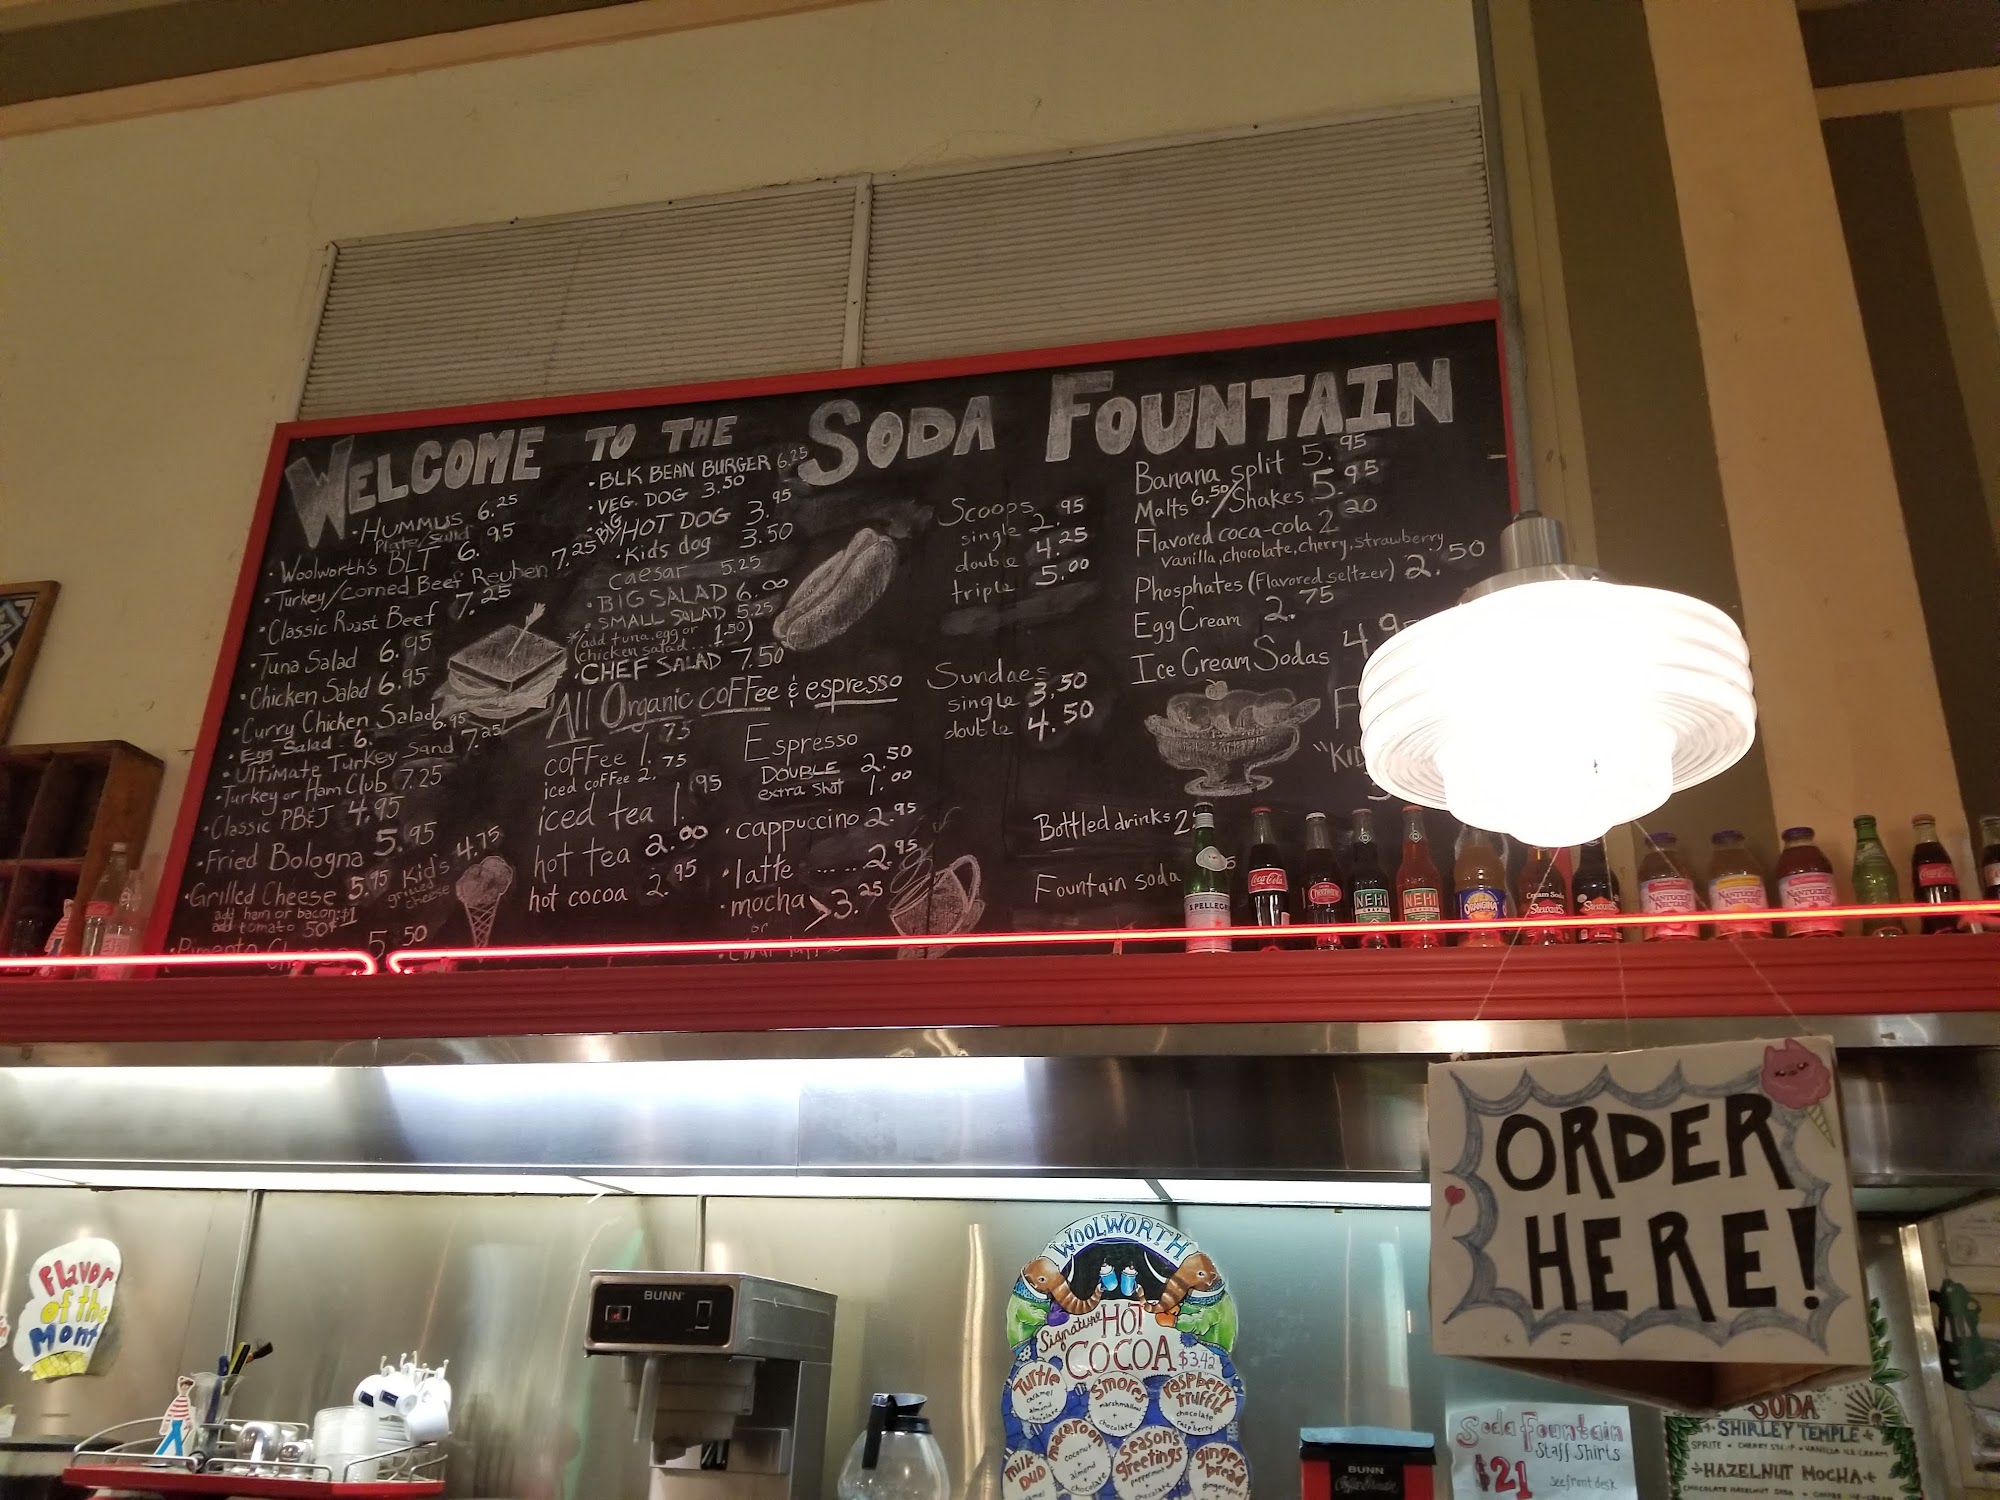 WELCOME TO THE SODA FOUNTAIN
• HUMMUS 6.25
Plate/Salad
• Woolworth's BLT 6.95
• Turkey/Corned Beef Reuben 7.25
• Classic Roast Beef 7.25
• Tuna Salad 6.95
• Chicken Salad 6.95
• Curry Chicken Salad 6.95
• Egg Salad - 6.
• Ultimate Turkey Sand 7.25
• Turkey or Ham Club 7.25
• Classic PB&J 4.95
• Fried Bologna 5.95
• Grilled Cheese 5.95
add ham or bacon: $1
add tomato 50¢
Kid's 4.75
grilled
cheese
• Pimento Cheese 5.50
• BLK BEAN BURGER 6.25
• VEG. DOG 3.50
• BIG HOT DOG 3.95
• Kids dog 3.50
caesar 5.25
• BIG SALAD 6.00
• SMALL SALAD 5.25
*(add tuna, egg or
chicken salad....1.50)
• CHEF SALAD 7.50
All Organic coffee & espresso
coffee 1.75
iced coffee 2.75
iced tea 1.95
hot tea 2.00
hot cocoa 2.95
Espresso
DOUBLE 2.50
extra shot 1.00
• cappuccino 2.95
• latte ...... 2.95
• mocha 3.25
or
Scoops
single 2.95
double 4.25
triple 5.00
Sundaes
single 3.50
double 4.50
Banana split 5.95
Malts 6.50/Shakes 5.95
Flavored coca-cola 2.20
vanilla, chocolate, cherry, strawberry
Phosphates (Flavored seltzer) 2.50
Egg Cream 2.75
Ice Cream Sodas 4.95
"KID
Bottled drinks 2
Fountain soda
S.PELLEGRINO
Coca-Cola
Cheerwine
NEHI
NEHI
ORANGINA
Cream Soda
STEWART'S
STEWART'S
NANTUCKET NECTARS
NANTUCKET NECTARS
NANTUCKET NECTARS
Coca-Cola
ORDER
HERE!
Flavor
of the
Mont
BUNN
WOOLWORTH
Signature HOT
COCOA $3.42
Turtle
caramel
almond
chocolate
S'mores
marshmallow
+
chocolate
raspberry
truffle
chocolate
+
raspberry
macaroon
coconut
+
almond
chocolate
Season's
Greetings
peppermint
+
chocolate
milk
DUD
caramel
ginger
bread
BUNN
Soda Fountain
Staff Shirts
$21
see front desk
SODA
SHIRLEY TEMPLE
SPRITE + CHERRY SYRUP + VANILLA ICE CREAM
HAZELNUT MOCHA
CHOCOLATE HAZELNUT SODA + COFFEE ICE CREAM